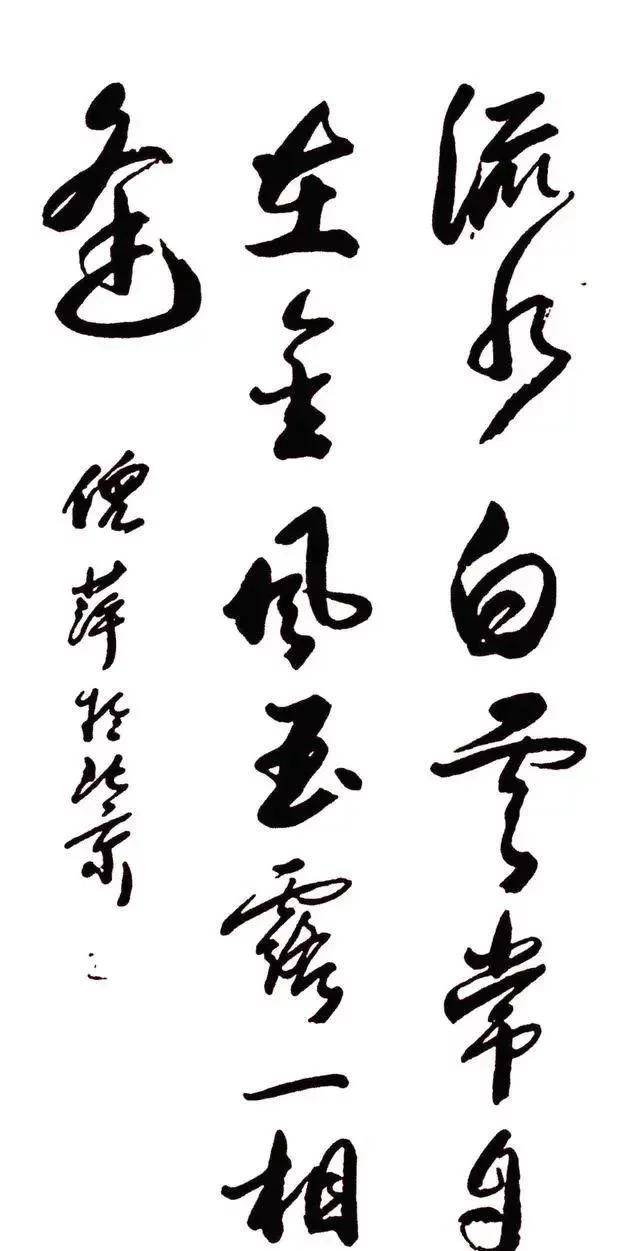 流水白云常自
在金風玉露一相
逢
倪萍於北京